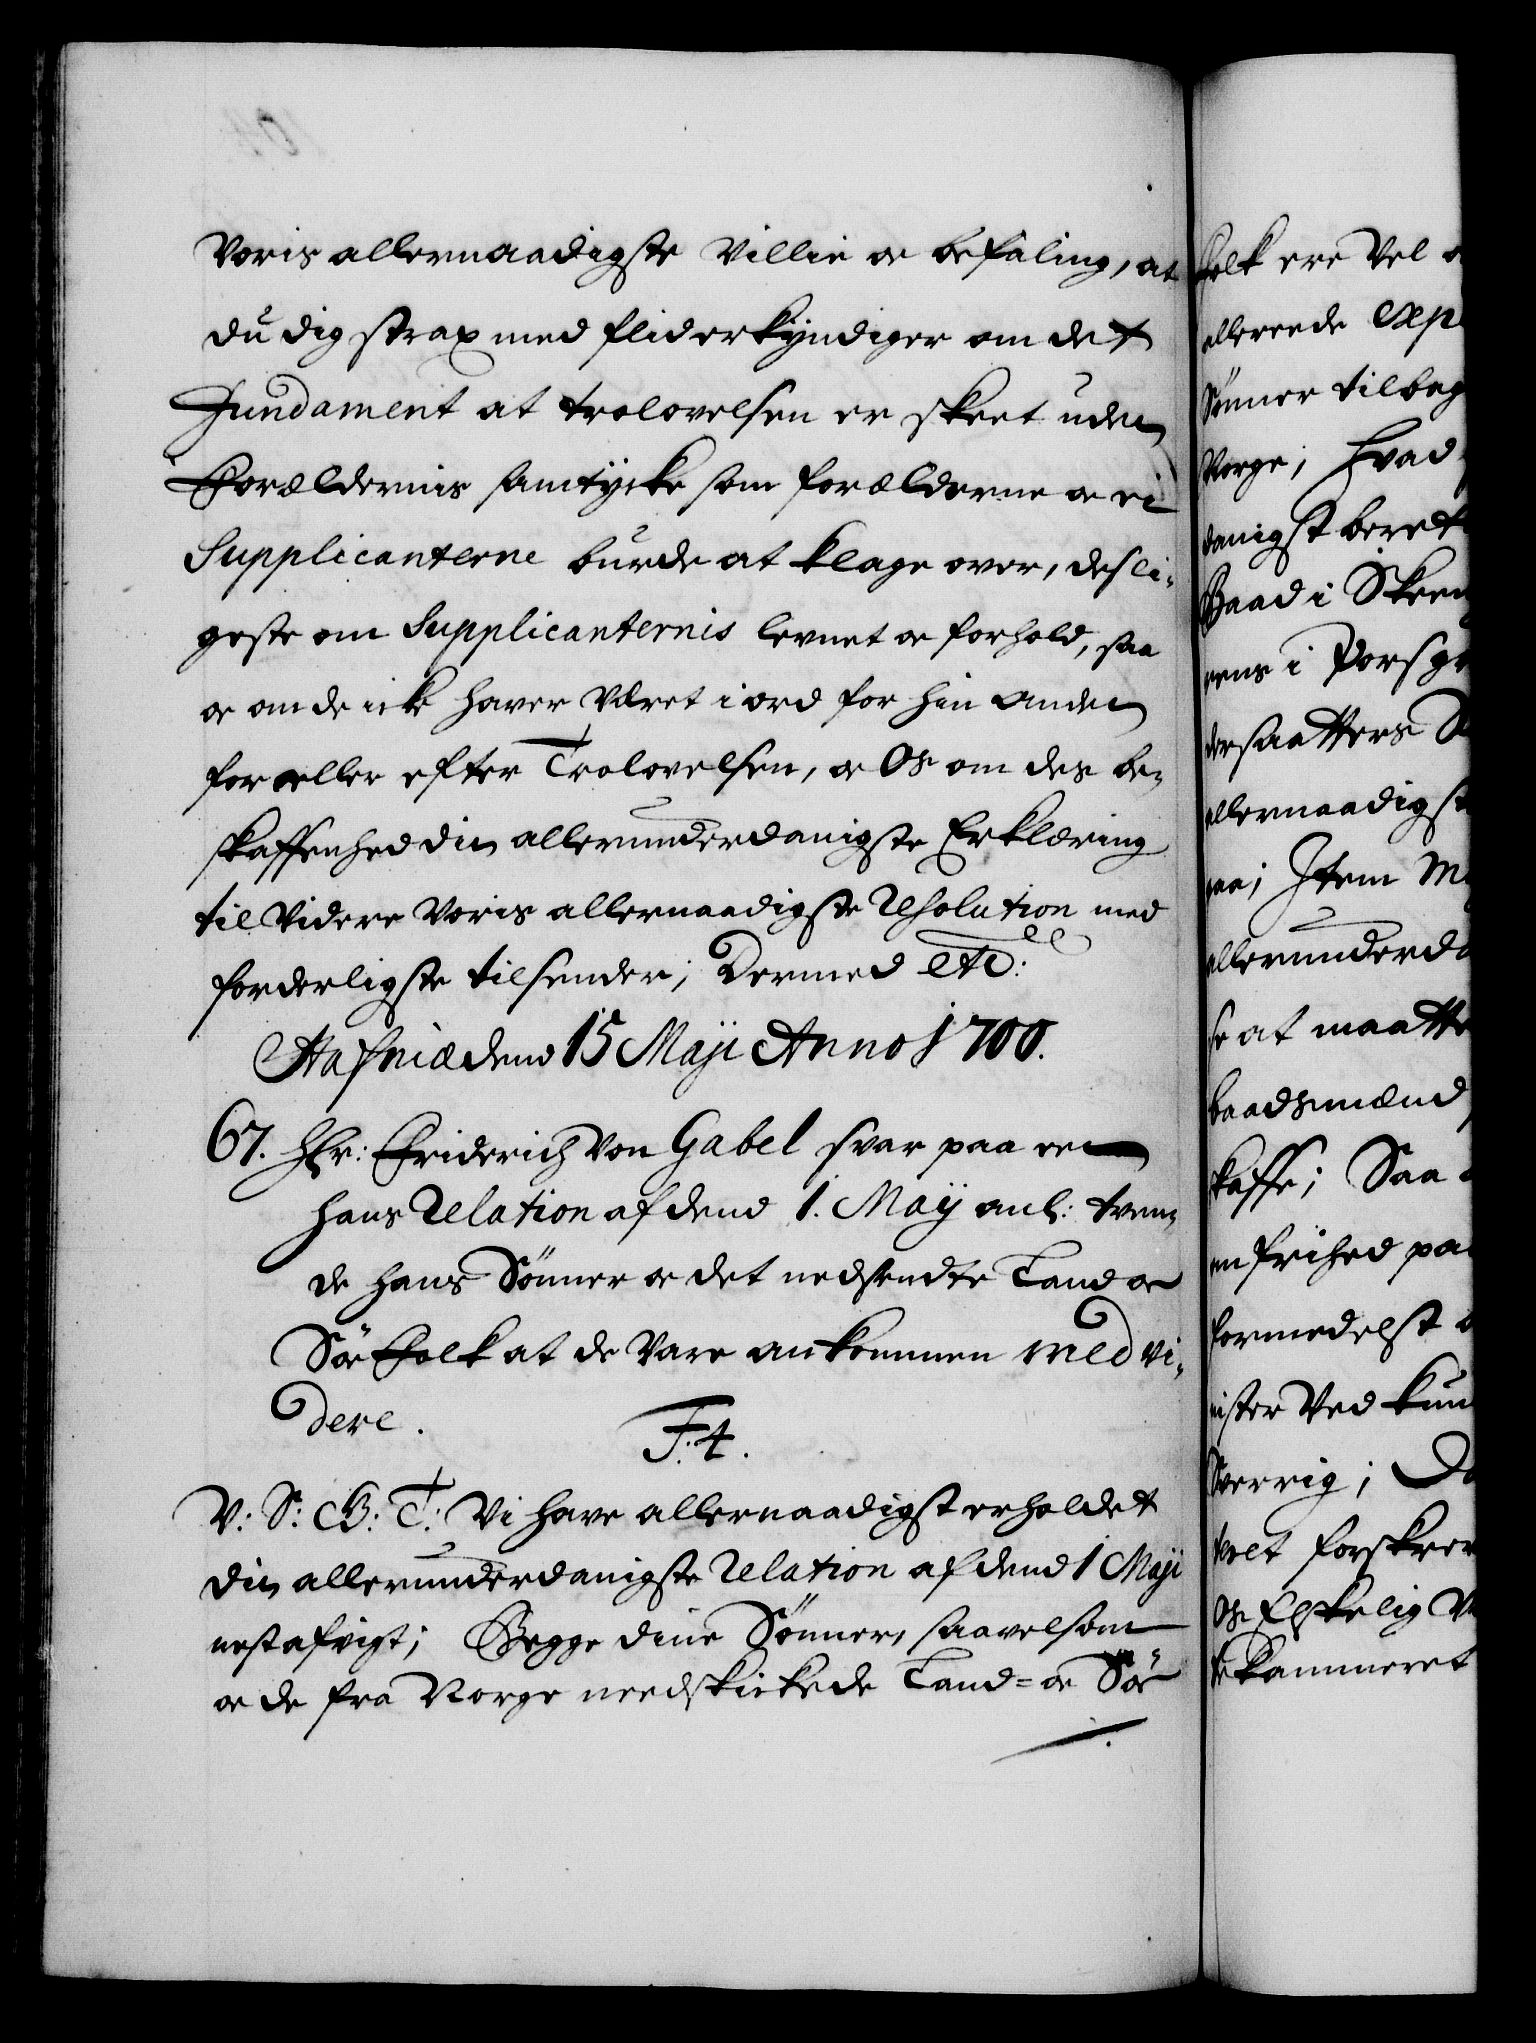 Voris allernaadigste Villie oc befaling, at
du dig strax med flid erkyndiger om det
Fundament at trolovelsen er skeet uden
Forældernis samtycke som forælderne oc ei
Supplicanterne burde at klage over, desli-
geste om Supplicanternis levnet oc forhold, saa
oc om de icke haver været i ord for hin anden
for eller efter Trolovelsen, oc Os om des be-
skaffenhed din allerunderdanigste Erklæring
til Videre Voris allernaadigste Resolution med
forderligste tilsender; Dermed etc:
Hafniæ dend 15 Maji Anno 1700.
67. Hr: Friderich Von Gabel svar paa een
hans Relation af dend 1. Maij anl: tven-
de hans Sönner oc det nedsendte Land oc
Söe Folk at de Vare ankommen med vi-
dere.
F. 4.
V: S: G: T: Vi have allernaadigst erholdet
din allerunderdanigste Relation af dend 1 Maji
nestafvigt; Begge dine Sönner, saavelsom
oc de fra Norge needskickede Land= oc Söe
folk ere Vel
allereede exp
Sönner tilbag
Norge; hvad
danigst beret
Baad i Skeen
eens i Porsgr
dersaatters
allernaadigst
paa; Item
allerunderd
se at maatte
baadsmænd
skaffe; Saa
en frihed paa
formedelst
nister Ved
Sverrig;
forskrev
Os Elskelig
te Kammeret